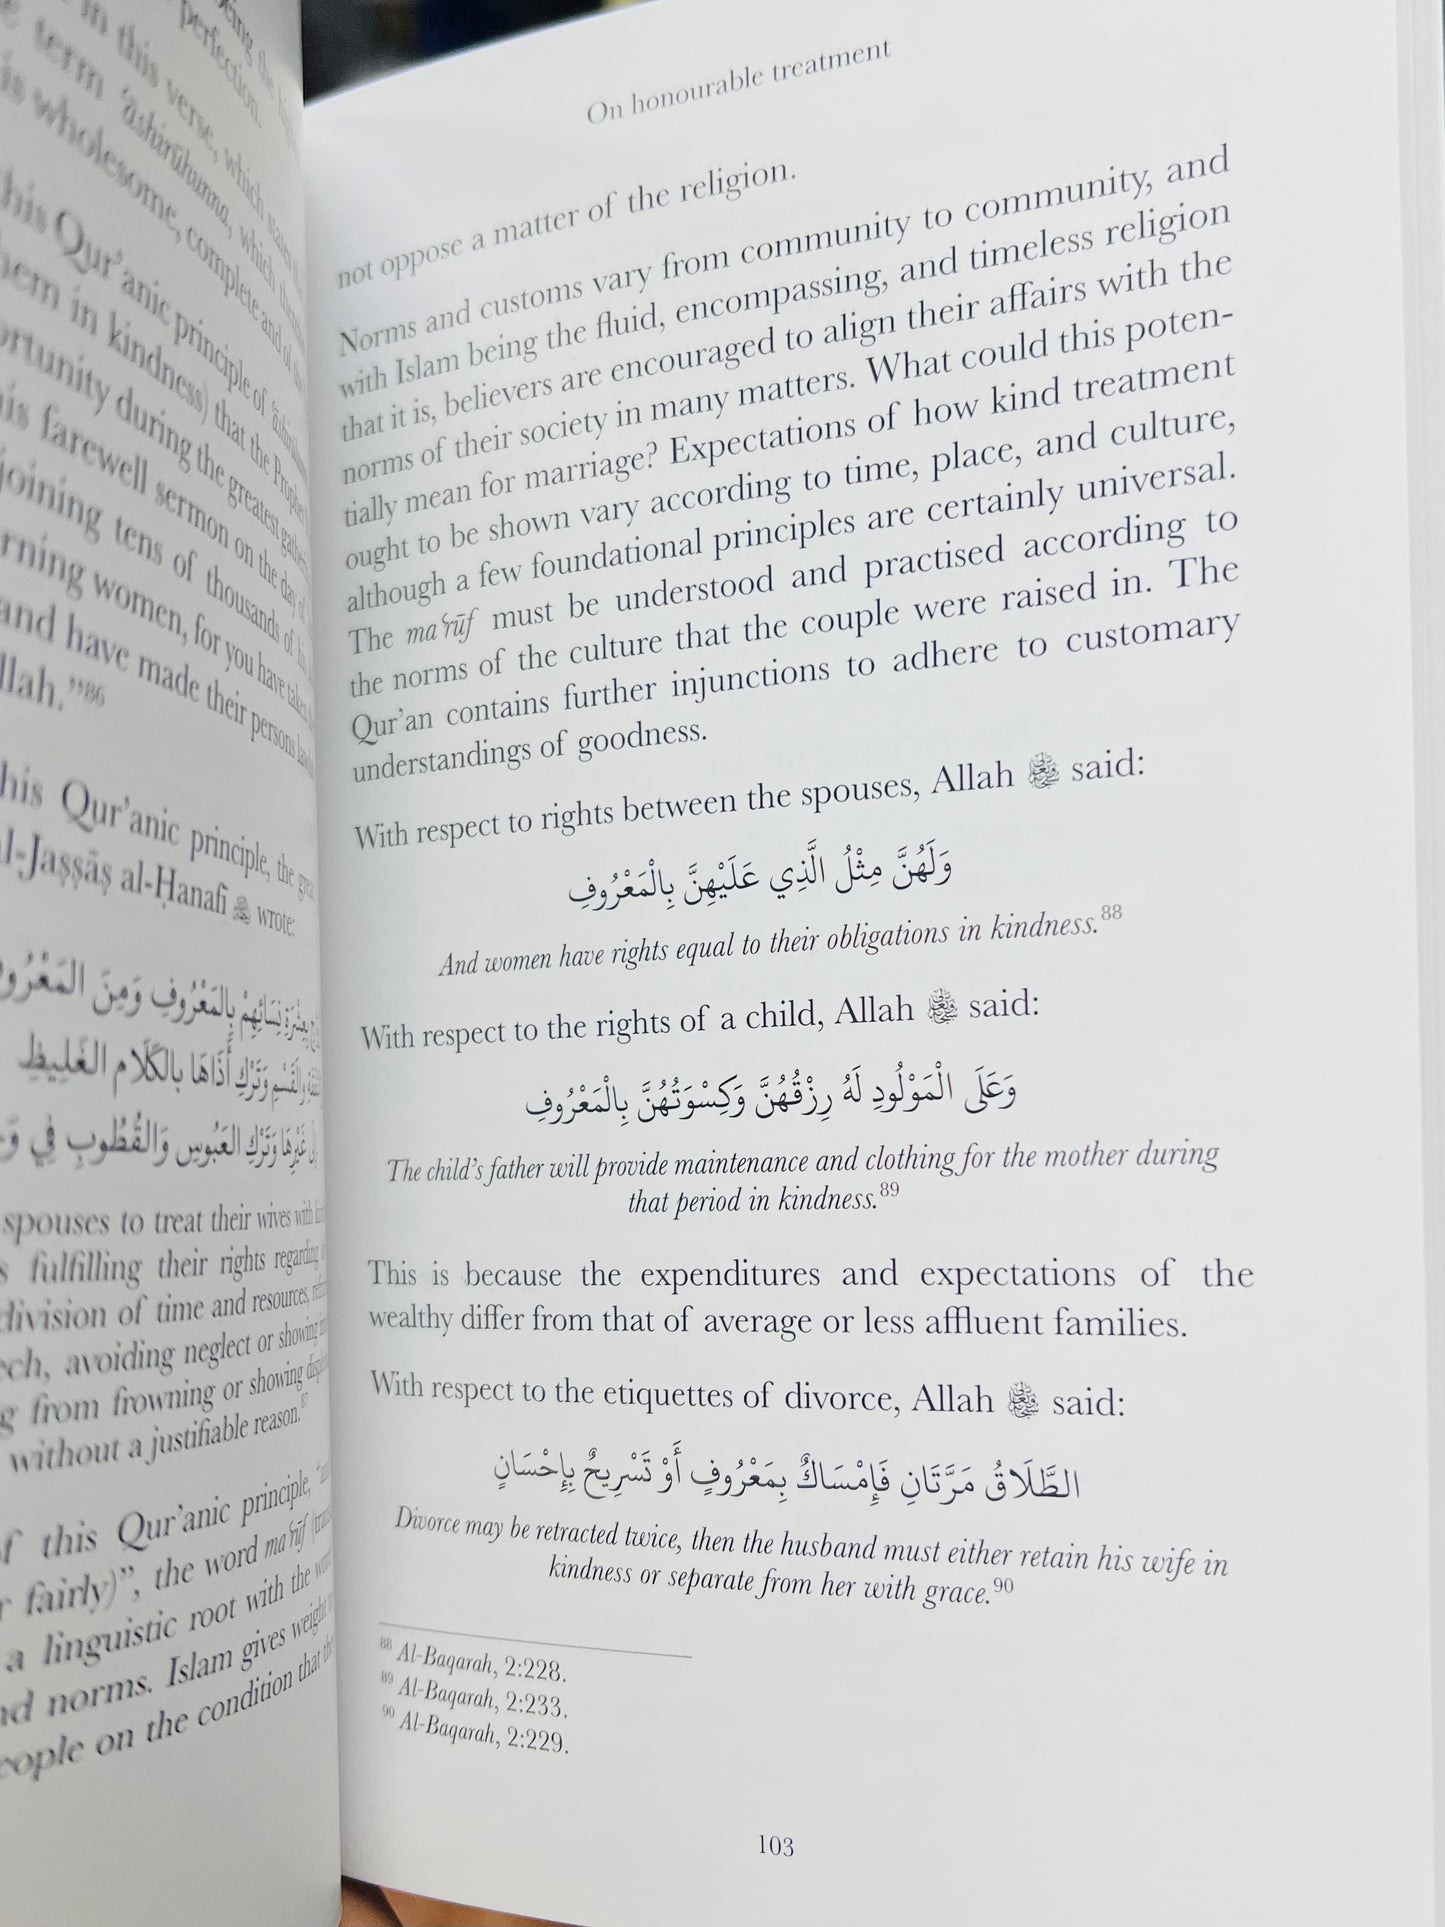 perfection.
in this verse, which
term ʿāshirūhunna, which
is wholesome, complete and of the
this Qur’anic principle of
them in kindness) that the Prophet
opportunity during the greatest
his farewell sermon on the day of
joining tens of thousands of his
women, for you have taken
and have made their persons
Allah.”86
this Qur’anic principle, the great
al-Jaṣṣāṣ al-Ḥanafī wrote:
نِسَائِهِمْ بِالمَعْرُوفِ وَمِنَ
وَالْقَسْمِ وَتَرْكِ أَذَاهَا بِالكَلَامِ الغَلِيظِ
غَيْرِهَا وَتَرْكِ العَبُوسِ وَالقُطُوبِ فِي
spouses to treat their wives with
fulfilling their rights regarding
division of time and resources,
avoiding neglect or showing
from frowning or showing
without a justifiable reason.87
of this Qur’anic principle,
fairly)”, the word maʿrūf
a linguistic root with the
norms. Islam gives weight
people on the condition that
On honourable treatment
not oppose a matter of the religion.
Norms and customs vary from community to community, and
with Islam being the fluid, encompassing, and timeless religion
that it is, believers are encouraged to align their affairs with the
norms of their society in many matters. What could this poten-
tially mean for marriage? Expectations of how kind treatment
ought to be shown vary according to time, place, and culture,
although a few foundational principles are certainly universal.
The maʿrūf must be understood and practised according to
the norms of the culture that the couple were raised in. The
Qur’an contains further injunctions to adhere to customary
understandings of goodness.
With respect to rights between the spouses, Allah said:
وَلَهُنَّ مِثْلُ الَّذِي عَلَيْهِنَّ بِالْمَعْرُوفِ
And women have rights equal to their obligations in kindness.88
With respect to the rights of a child, Allah said:
وَعَلَى الْمَوْلُودِ لَهُ رِزْقُهُنَّ وَكِسْوَتُهُنَّ بِالْمَعْرُوفِ
The child’s father will provide maintenance and clothing for the mother during
that period in kindness.89
This is because the expenditures and expectations of the
wealthy differ from that of average or less affluent families.
With respect to the etiquettes of divorce, Allah said:
الطَّلَاقُ مَرَّتَانِ فَإِمْسَاكٌ بِمَعْرُوفٍ أَوْ تَسْرِيحٌ بِإِحْسَانٍ
Divorce may be retracted twice, then the husband must either retain his wife in
kindness or separate from her with grace.90
88 Al-Baqarah, 2:228.
89 Al-Baqarah, 2:233.
90 Al-Baqarah, 2:229.
103